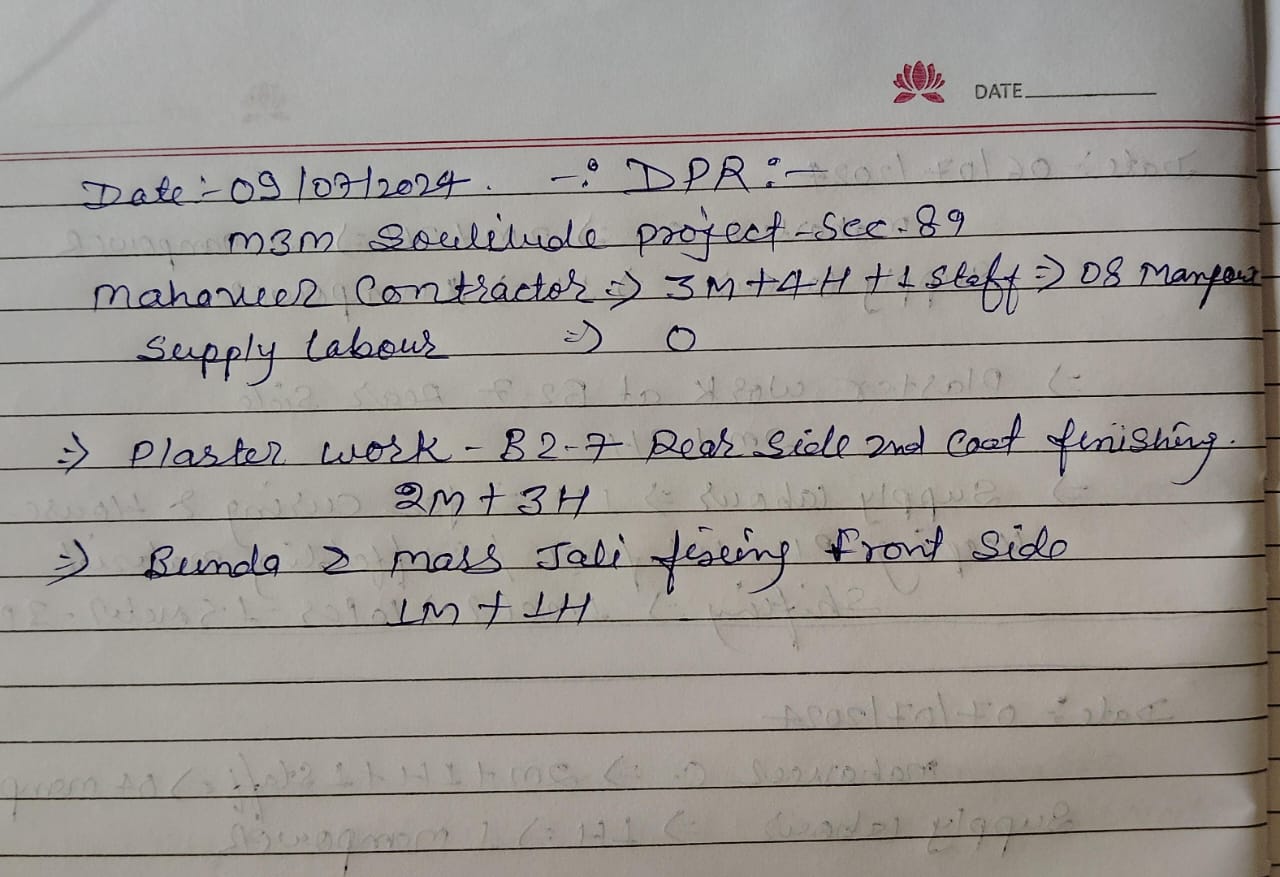 DATE
Date:- 09/07/2024. -: DPR :-
M3M Soulilude project - Sec. 89
Mahaveer Contractor => 3M+4H+1 Staff => 08 Manpower
Supply labour => 0
=> Plaster work - B2-7 Rear Side 2nd Coat finishing.
2M + 3H
=> Bunda 2 mass Jali fixing front Side
1M + 1H